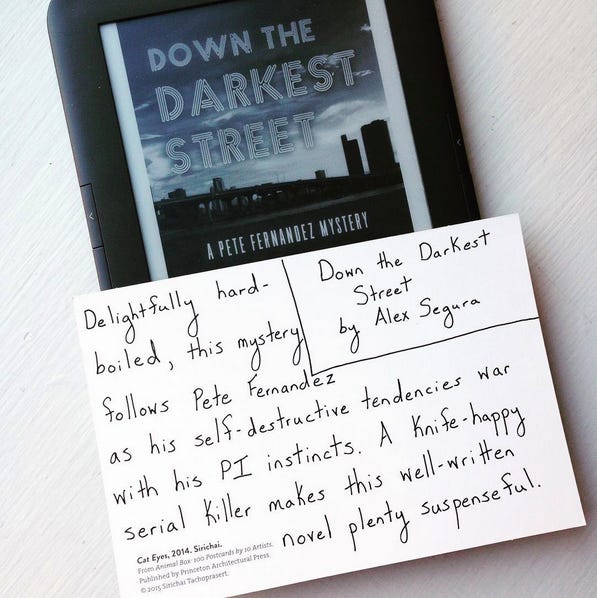 DOWN THE
DARKEST
STREET
A PETE FERNANDEZ MYSTERY
Down the Darkest
Street
by Alex Segura
Delightfully hard-
boiled, this mystery
follows Pete Fernandez
as his self-destructive tendencies war
with his PI instincts. A knife-happy
serial killer makes this well-written
novel plenty suspenseful.
Cat Eyes, 2014. Sirichai.
From Animal Box: 100 Postcards by 10 Artists.
Published by Princeton Architectural Press
© 2015 Sirichai Tachoprasert.